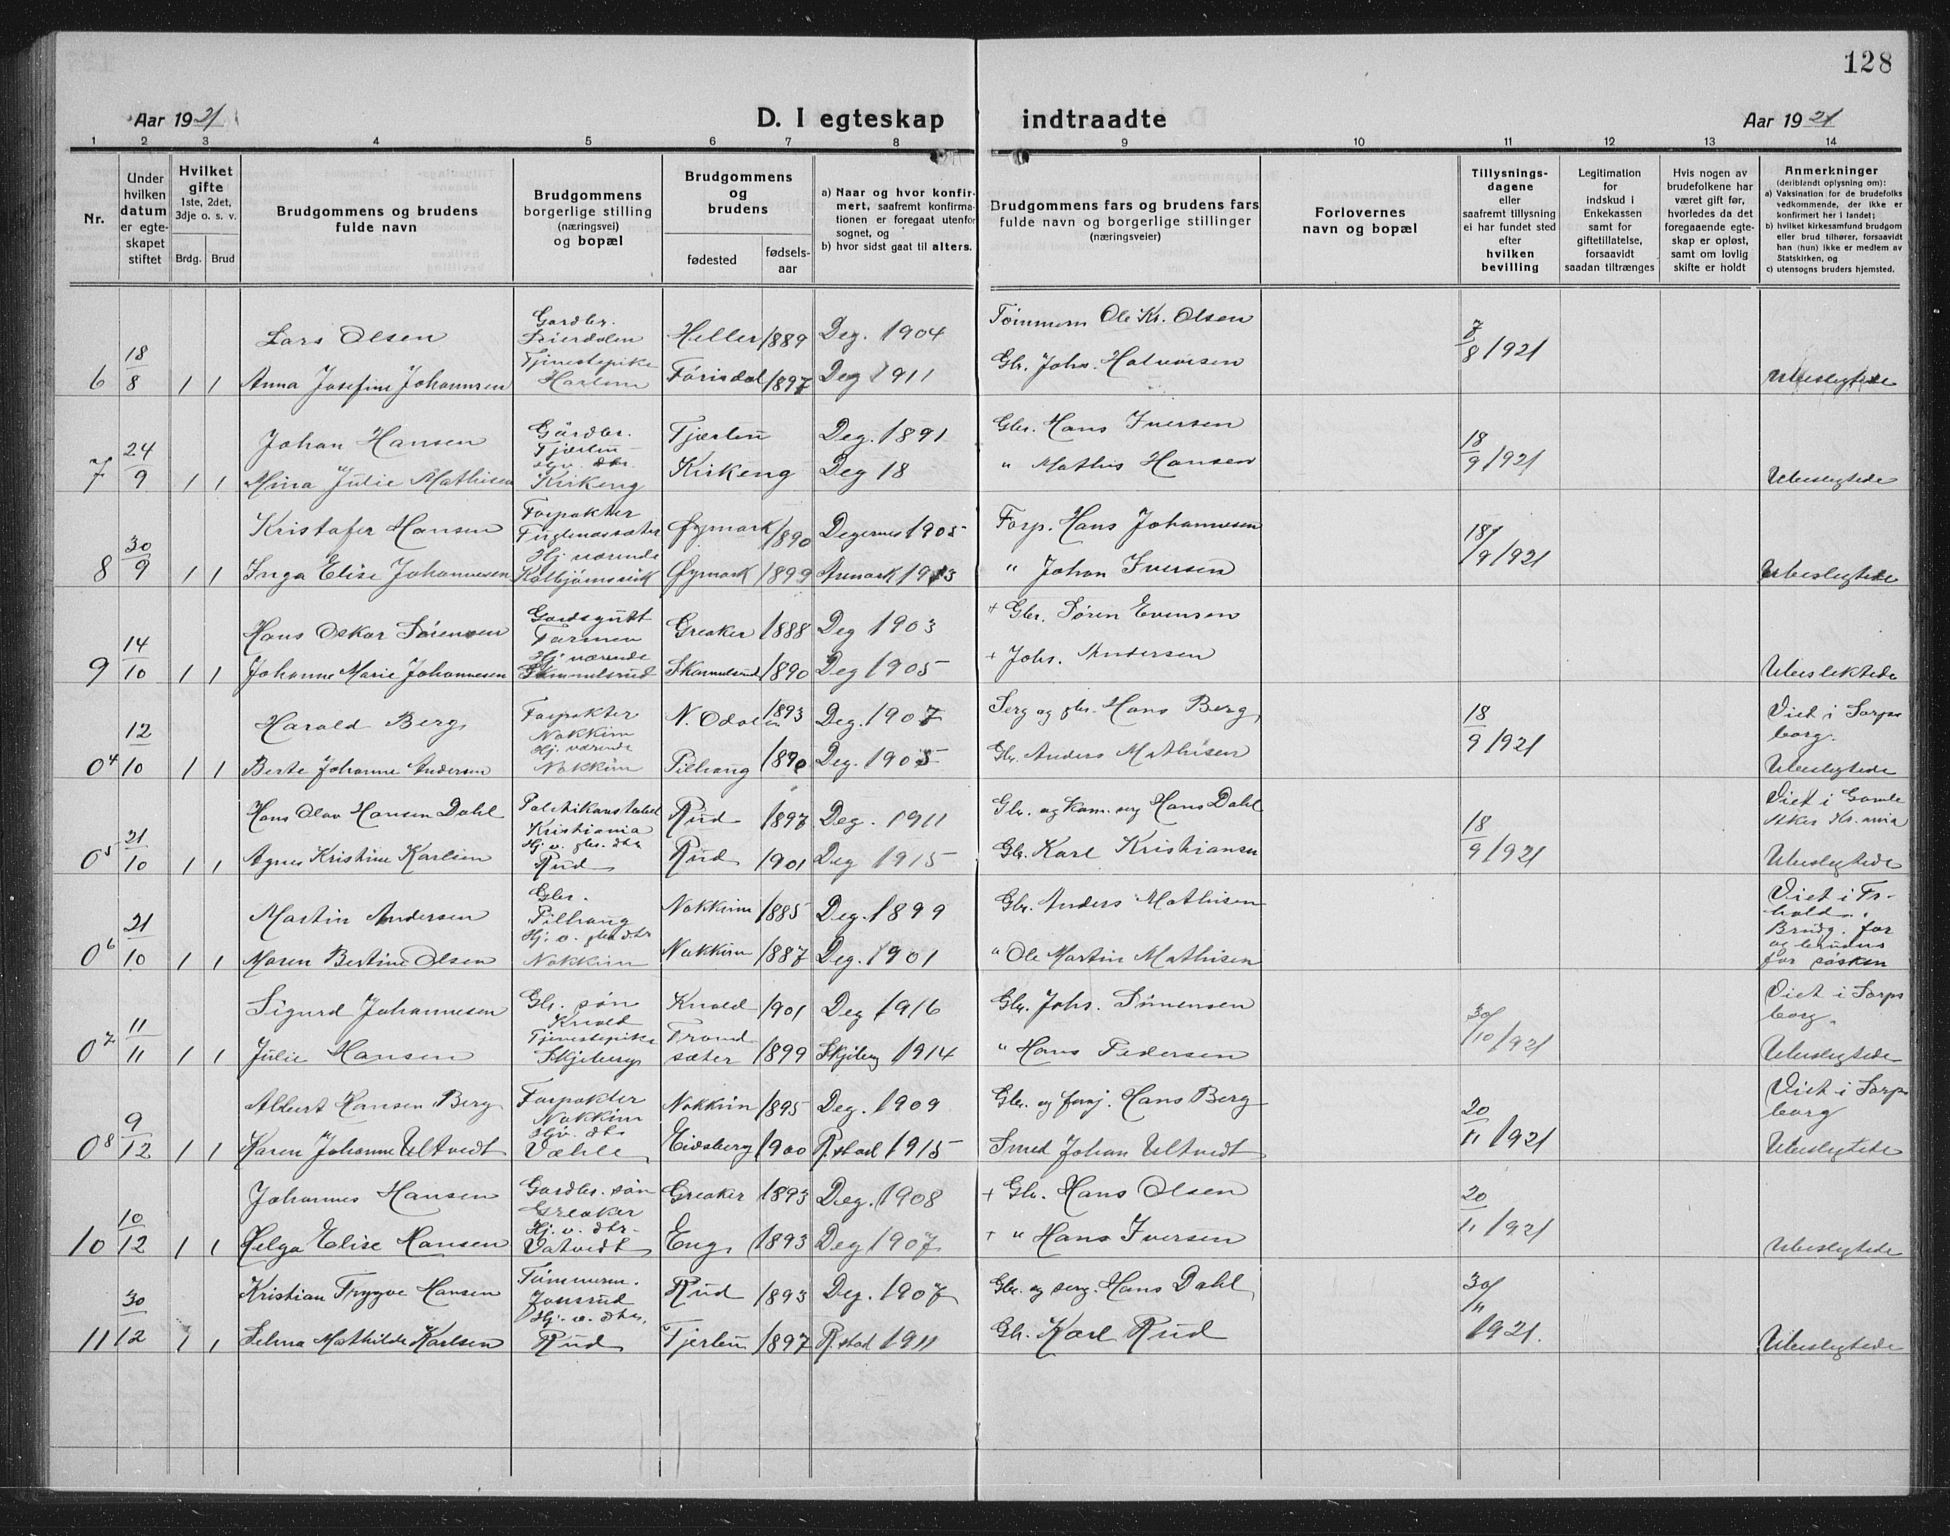 128
Aar 1921
D. I egteskap indtraadte
Aar 1921
1 2 3 4 5 6 7 8 9 10 11 12 13 14
Nr.
Under hvilken datum er egte-skapet stiftet
Hvilket gifte 1ste, 2det, 3dje o. s. v.
Brdg. Brud
Brudgommens og brudens fulde navn
Brudgommens borgerlige stilling (næringsvei) og bopæl
Brudgommens og brudens
fødested
fødsels-aar
a) Naar og hvor konfir-mert, saafremt konfirma-tionen er foregaat utenfor sognet, og
b) hvor sidst gaat til alters.
Brudgommens fars og brudens fars fulde navn og borgerlige stillinger (næringsveier)
Forlovernes navn og bopæl
Tillysnings-dagene eller saafremt tillysning ei har fundet sted efter hvilken bevilling
Legitimation for indskud i Enkekassen samt for giftetillatelse, forsaavidt saadan tiltrænges
Hvis nogen av brudefolkene har været gift før, hvorledes da det foregaaende egte-skap er opløst, samt om lovlig skifte er holdt
Anmerkninger (deriblandt oplysning om): a) Vaksination for de brudefolks vedkommende, der ikke er konfirmert her i landet; b) hvilket kirkesamfund brudgom eller brud tilhører, forsaavidt han (hun) ikke er medlem av Statskirken, og c) utensogns bruders hjemsted.
Lars Olsen Gardbr. Heller 1889 Deg. 1904 Tømmerm Ole Kr. Olsen 7/8 1921
6 18/8 1 1 Anna Josefine Johannesen Tjenestepike 1897 Deg 1911 Gbr. Johs. Halvorsen Ubeslegtede
Johan Hansen Gårdbr. Tjærbu Tjærbu Deg. 1891 Gbr. Hans Iversen 18/9 1921
7 24/9 1 1 Mina Julie Mathisen Kirkeng Kirkeng Deg 18 " Mathis Hansen Ubeslegtede
Kristofer Hansen Forpakter Øymark 1890 Degernes 1905 Forp. Hans Johannesen 18/9 1921
8 30/9 1 1 Inga Elise Johannesen Hj værende Kolbjørnsvik Øymark 1899 Aremark 1913 " Johan Iversen Ubeslegtede
Hans Oskar Sørensen Gardsgutt Greaker 1888 Deg 1903 + Gbr. Søren Evensen
9 14/10 1 1 Johanne Marie Johannesen Hj værende Skammelsrud Skammelsrud 1890 Deg 1905 + Johs. Andersen Ubeslektede
Harald Berg Forpakter Nokkim N. Odalen 1893 Deg. 1907 Serg og gbr. Hans Berg 18/9 1921 Viet i Sarpsborg.
04 12/10 1 1 Berte Johanne Andersen Hj. værende Nokkim Pilhaug Deg. 1905 Gbr. Anders Mathisen Ubeslegtede
Hans Olav Hansen Dahl Kristiania Rud 1897 Deg. 1911 Gbr. og Hans Dahl 18/9 1921 Viet i Gamle Aker Kr.ania
05 21/10 1 1 Agnes Kristine Karlsen Hj. v. gbr. dtr Rud Rud 1901 Deg 1915 Gbr. Karl Kristiansen Ubeslegtede
Martin Andersen Gbr. Pilhaug Nokkim 1885 Deg. 1899 Gbr. Anders Mathisen Viet i Fr-hald.
06 21/10 1 1 Maren Bertine Olsen Hj. v. gbr dtr Nokkim Nokkim 1887 Deg. 1901 " Ole Martin Mathisen Brudg. far og brudens far søsken
Sigurd Johannesen Gbr. søn Knold Knold 1901 Deg 1916 Gbr. Johs. Simensen 30/10 1921 Viet i Sarpsborg.
07 11/11 1 1 Julie Hansen Tjenestepike Skjeberg Trondsæter 1899 Skjeberg 1914 " Hans Pedersen Ubeslegtede
Albert Hansen Berg Forpakter Nokkim Nokkim 1895 Deg. 1909 Gbr. og Hans Berg 20/11 1921 Viet i Sarpsborg
08 9/12 1 1 Karen Johanne Ultvedt Hjv. dtr Væhle Eidsberg 1900 R.stad 1915 Smed Johan Ultvedt Ubeslegtede
Johannes Hansen Gardbr. søn Greaker Greaker 1893 Deg. 1908 + Gbr. Hans Olsen 20/11 1921
10 10/12 1 1 Helga Elise Hansen Hj. v. dtr. Vatvedt Eng 1893 Deg 1907 + " Hans Iversen Ubeslegtede
Kristian Trygve Hansen Tømmerm. Jonsrud Rud 1893 Deg. 1907 Gbr. og serg. Hans Dahl 30/11 1921.
11 30/12 1 1 Selma Mathilde Karlsen Hj. v. dtr. Rud Tjerbu 1897 R.stad 1911 Gbr. Karl Rud Ubeslegtede